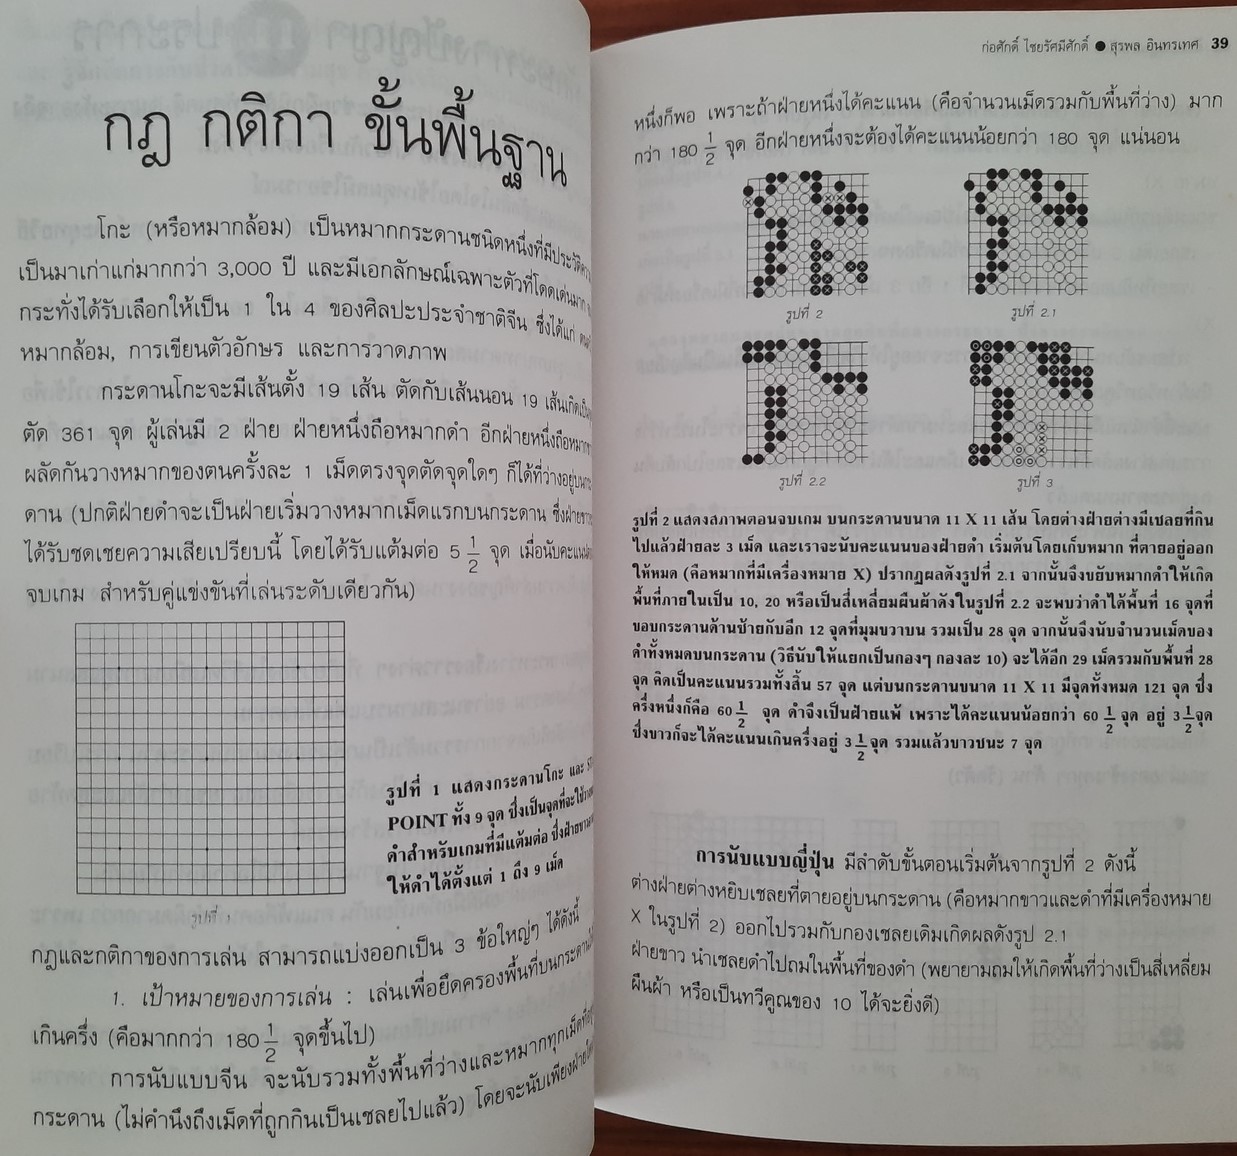 กฎ กติกา ขั้นพื้นฐาน
โกะ (หรือหมากล้อม) เป็นหมากกระดานชนิดหนึ่งที่มีประวัติความ
เป็นมาเก่าแก่มากกว่า 3,000 ปี และมีเอกลักษณ์เฉพาะตัวที่โดดเด่นมาก
กระทั่งได้รับเลือกให้เป็น 1 ใน 4 ของศิลปะประจำชาติจีน ซึ่งได้แก่
หมากล้อม, การเขียนตัวอักษร และการวาดภาพ
กระดานโกะจะมีเส้นตั้ง 19 เส้น ตัดกับเส้นนอน 19 เส้นเกิดเป็น
ตัด 361 จุด ผู้เล่นมี 2 ฝ่าย ฝ่ายหนึ่งถือหมากดำ อีกฝ่ายหนึ่งถือหมาก
ผลัดกันวางหมากของตนครั้งละ 1 เม็ดตรงจุดตัดจุดใดๆ ก็ได้ที่ว่างอยู่บน
ดาน (ปกติฝ่ายดำจะเป็นฝ่ายเริ่มวางหมากเม็ดแรกบนกระดาน ซึ่งฝ่าย
ได้รับชดเชยความเสียเปรียบนี้ โดยได้รับแต้มต่อ 5 1/2 จุด เมื่อนับคะแนน
จบเกม สำหรับคู่แข่งขันที่เล่นระดับเดียวกัน)
รูปที่ 1 แสดงกระดานโกะ และ
POINT ทั้ง 9 จุด ซึ่งเป็นจุดที่จะใช้วาง
ดำสำหรับเกมที่มีแต้มต่อ ซึ่งฝ่าย
ให้ดำได้ตั้งแต่ 1 ถึง 9 เม็ด
รูปที่ 1
กฎและกติกาของการเล่น สามารถแบ่งออกเป็น 3 ข้อใหญ่ๆ ได้ดังนี้
1. เป้าหมายของการเล่น : เล่นเพื่อยึดครองพื้นที่บนกระดาน
เกินครึ่ง (คือมากกว่า 180 1/2 จุดขึ้นไป)
การนับแบบจีน จะนับรวมทั้งพื้นที่ว่างและหมากทุกเม็ดที่
กระดาน (ไม่คำนึงถึงเม็ดที่ถูกกินเป็นเชลยไปแล้ว) โดยจะนับเพียงฝ่าย
ก่อศักดิ์ ไชยรัศมีศักดิ์ ● สุรพล อินทรเทศ 39
หนึ่งก็พอ เพราะถ้าฝ่ายหนึ่งได้คะแนน (คือจำนวนเม็ดรวมกับพื้นที่ว่าง) มาก
กว่า 180 1/2 จุด อีกฝ่ายหนึ่งจะต้องได้คะแนนน้อยกว่า 180 จุด แน่นอน
รูปที่ 2
รูปที่ 2.1
รูปที่ 2.2
รูปที่ 3
รูปที่ 2 แสดงสภาพตอนจบเกม บนกระดานขนาด 11 X 11 เส้น โดยต่างฝ่ายต่างมีเชลยที่กิน
ไปแล้วฝ่ายละ 3 เม็ด และเราจะนับคะแนนของฝ่ายดำ เริ่มต้นโดยเก็บหมาก ที่ตายอยู่ออก
ให้หมด (คือหมากที่มีเครื่องหมาย X) ปรากฏผลดังรูปที่ 2.1 จากนั้นจึงขยับหมากดำให้เกิด
พื้นที่ภายในเป็น 10, 20 หรือเป็นสี่เหลี่ยมผืนผ้าดังในรูปที่ 2.2 จะพบว่าดำได้พื้นที่ 16 จุดที่
ขอบกระดานด้านซ้ายกับอีก 12 จุดที่มุมขวาบน รวมเป็น 28 จุด จากนั้นจึงนับจำนวนเม็ดของ
ดำทั้งหมดบนกระดาน (วิธีนับให้แยกเป็นกองๆ กองละ 10) จะได้อีก 29 เม็ดรวมกับพื้นที่ 28
จุด คิดเป็นคะแนนรวมทั้งสิ้น 57 จุด แต่บนกระดานขนาด 11 X 11 มีจุดทั้งหมด 121 จุด ซึ่ง
ครึ่งหนึ่งก็คือ 60 1/2 จุด ดำจึงเป็นฝ่ายแพ้ เพราะได้คะแนนน้อยกว่า 60 1/2 จุด อยู่ 3 1/2 จุด
ซึ่งขาวก็จะได้คะแนนเกินครึ่งอยู่ 3 1/2 จุด รวมแล้วขาวชนะ 7 จุด
การนับแบบญี่ปุ่น มีลำดับขั้นตอนเริ่มต้นจากรูปที่ 2 ดังนี้
ต่างฝ่ายต่างหยิบเชลยที่ตายอยู่บนกระดาน (คือหมากขาวและดำที่มีเครื่องหมาย
X ในรูปที่ 2) ออกไปรวมกับกองเชลยเดิมเกิดผลดังรูป 2.1
ฝ่ายขาว นำเชลยดำไปถมในพื้นที่ของดำ (พยายามถมให้เกิดพื้นที่ว่างเป็นสี่เหลี่ยม
ผืนผ้า หรือเป็นทวีคูณของ 10 ได้จะยิ่งดี)